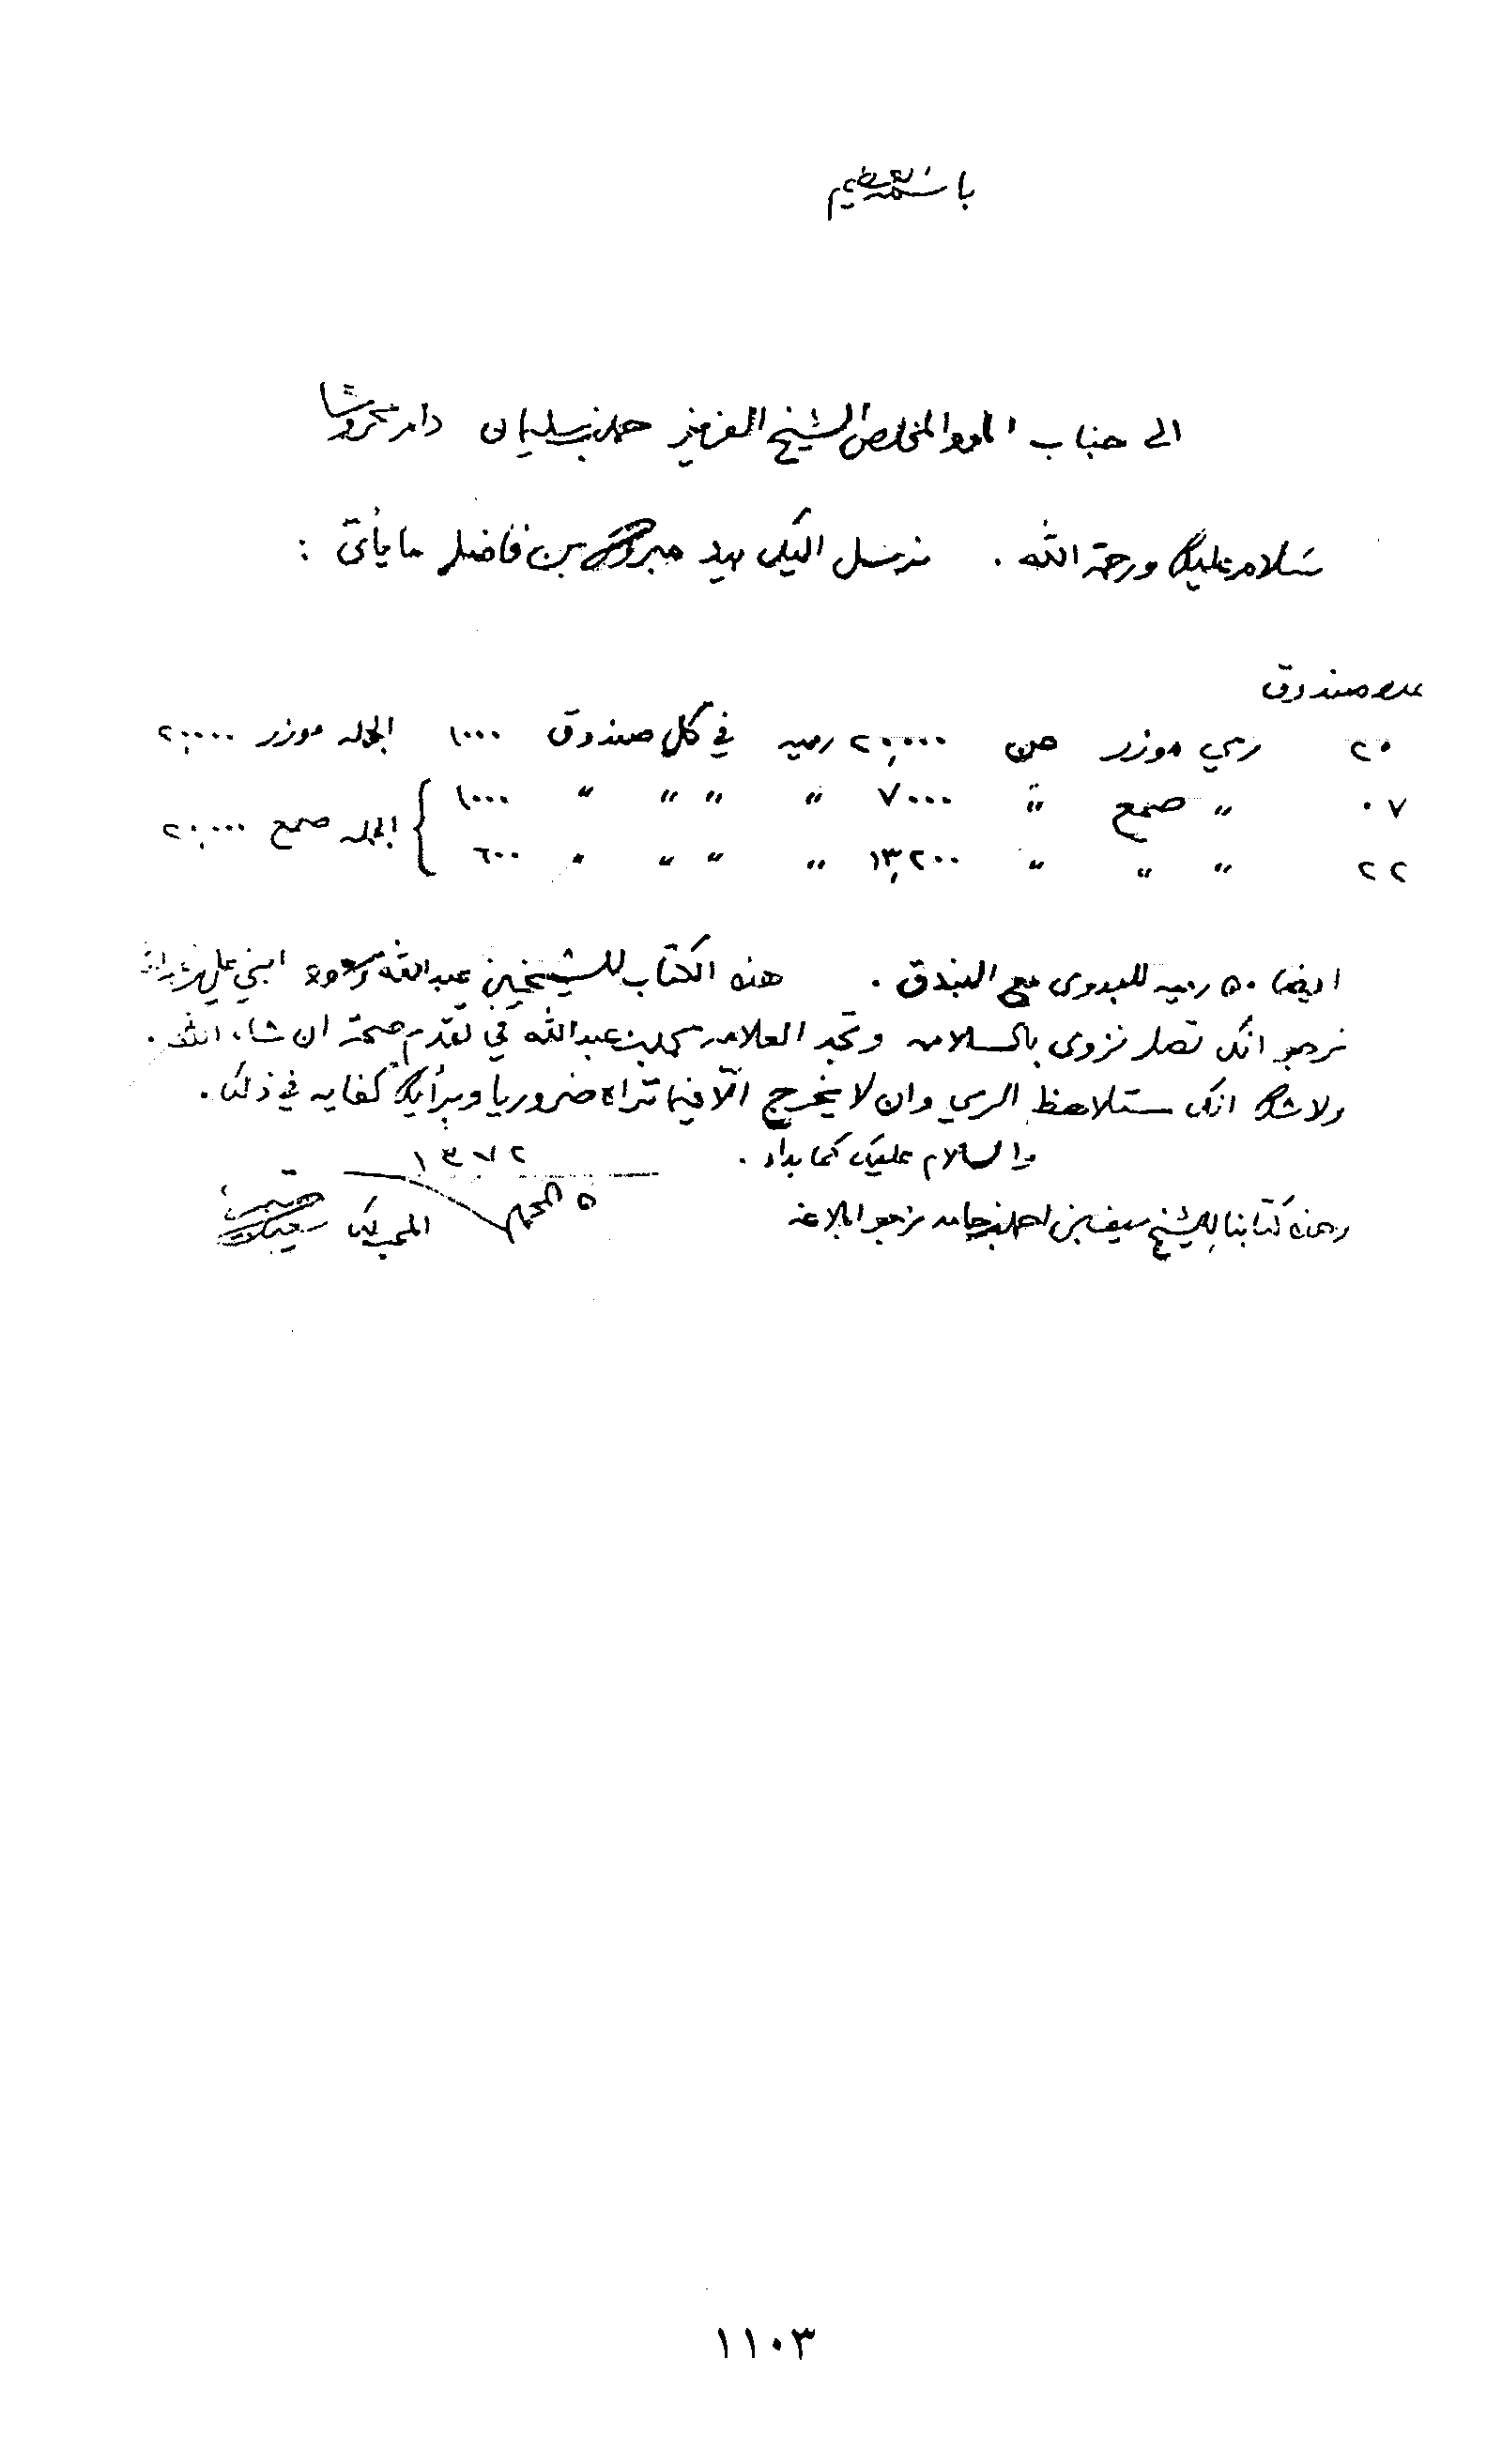 باسمه العظيم
الى جناب المود المخلص الشيخ العزيز حمد بن سليمان دام محروسا
سلام عليك ورحمة الله . نرسل اليك بيد مبروك بن فاضل ما يأتي :
عدد صندوق
٢٠ رمي موزر من ٢٠,٠٠٠ رميه في كل صندوق ١٠٠٠ الجمله موزر ٢٠,٠٠٠
٠٧ " صمع " ٧٠٠٠ " " " " ١٠٠٠
الجمله صمع ٢٠,٠٠٠
٢٢ " " " ١٣,٢٠٠ " " " " ٦٠٠
ايضا ٥٠ رميه للبدوى مع البندق . هذه الكتاب للشيخين عبدالله و ابني علي
نرجو انك تصل نزوى بالسلامه وتجد العلامه محمد بن عبدالله في تقدم صحة ان شاء الله .
ولا شك انك ستلاحظ الرمي وان لا يخرج الّا فيما تراه ضروريا وبرأيك كفايه في ذلك .
والسلام عليك كما بدأ .
١٣٧٢
٥ المحرم
المحب لك
وهذه كتابنا للشيخ سيف بن احمد بن حامد نرجو ابلاغه
١١٠٣